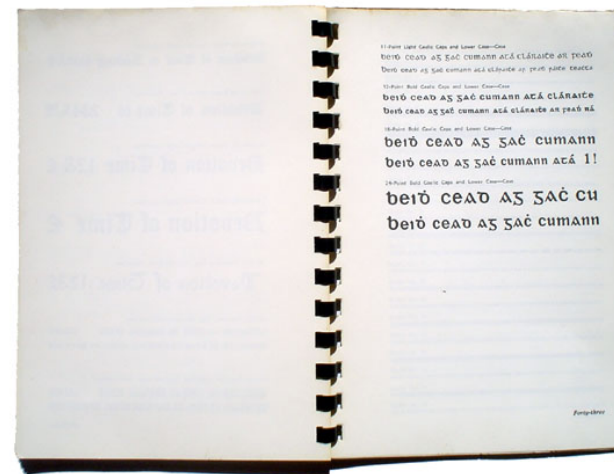 11-Point Light Gaelic Caps and Lower Case—Case
beiḋ cead ag gaċ cumann atá cláraiṫe an feaḋ
beiḋ cead ag gaċ cumann atá cláraiṫe
12-Point Bold Gaelic Caps and Lower Case—Case
beiḋ cead ag gaċ cumann atá cláraiṫe
beiḋ cead ag gaċ cumann atá cláraiṫe an feaḋ ná
18-Point Bold Gaelic Caps and Lower Case—Case
beiḋ cead ag gaċ cumann
beiḋ cead ag gaċ cumann atá 1!
24-Point Bold Gaelic Caps and Lower Case—Case
beiḋ cead ag gaċ cu
beiḋ cead ag gaċ cumann
Forty-three